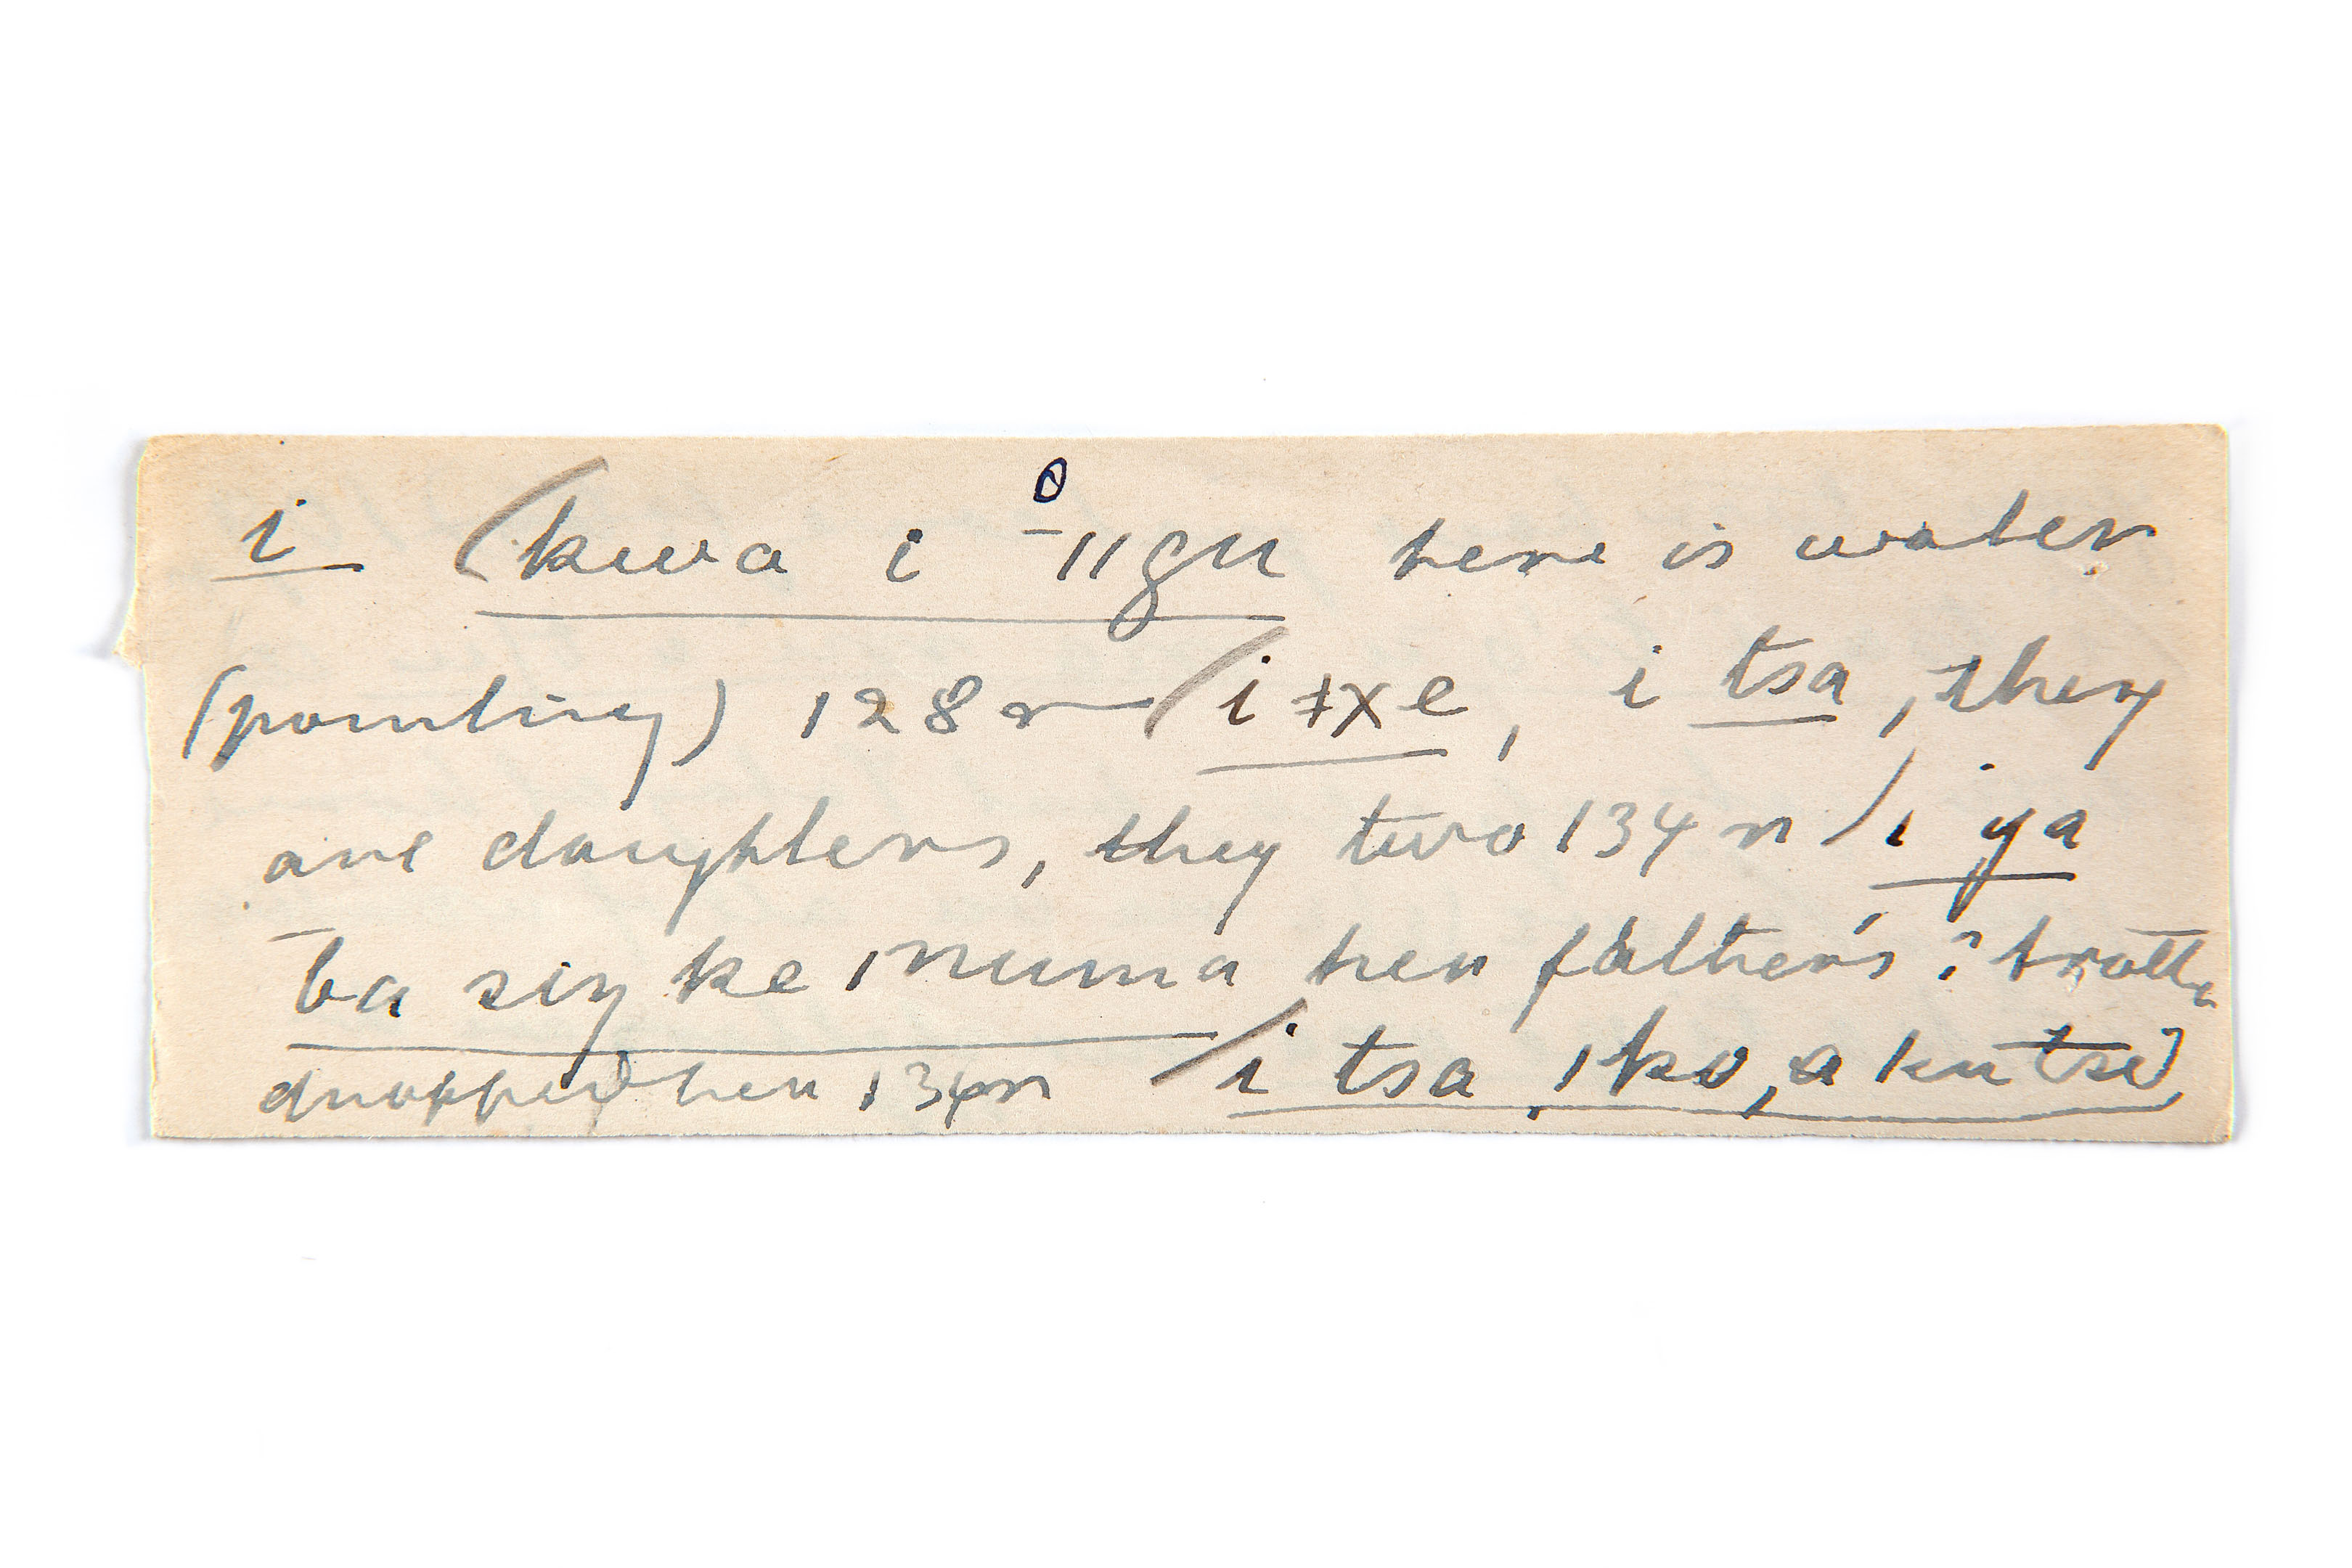 i (kwa i ǁgu here is water
(pointing) 128 r / i ǂxe, i tsa, they
are daughters, they two 134 r / i ya
ba siŋ ke ǀnuma her father's ? brother
dropped her 134r / i tsa ǀko, a ku tse)